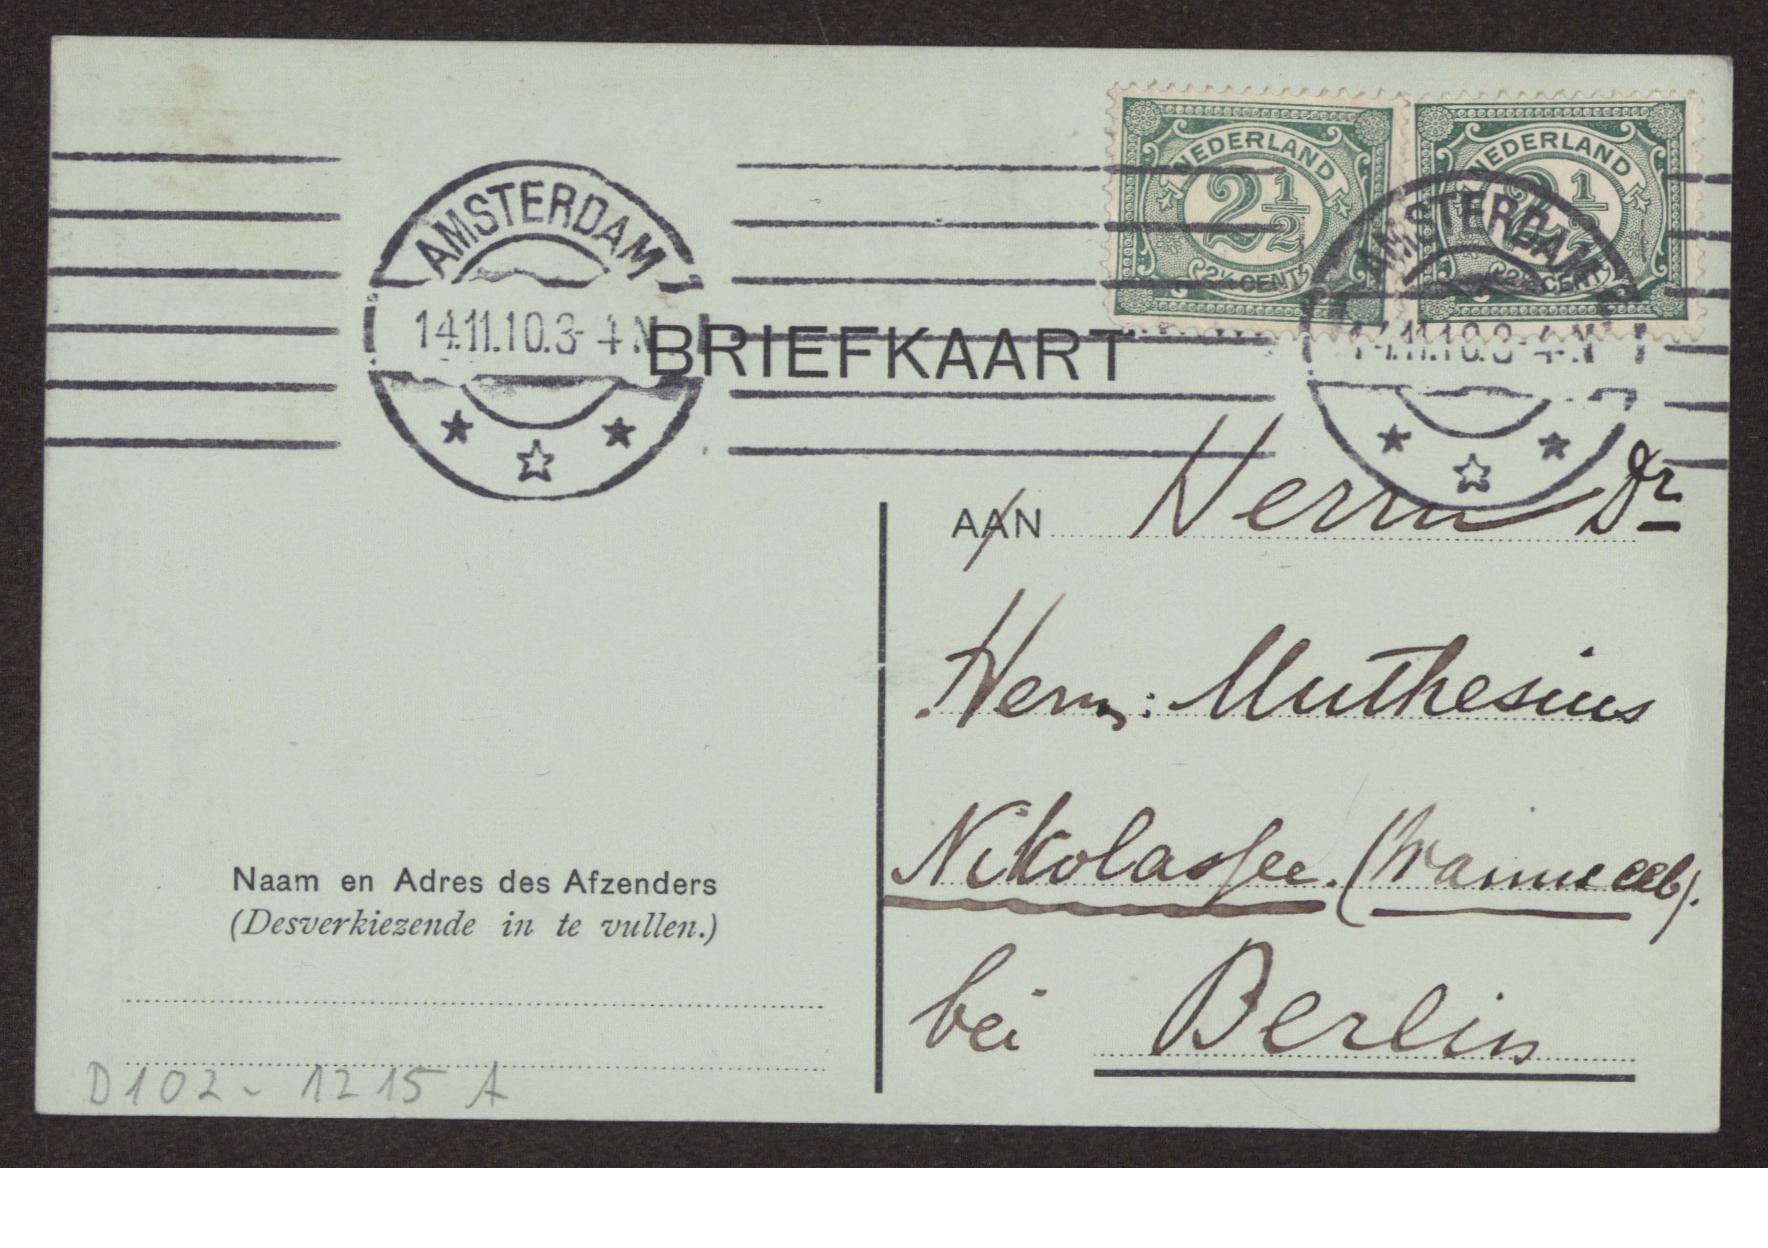 NEDERLAND
2½
2½ CENT
NEDERLAND
2½
2½ CENT
AMSTERDAM
14.11.10.3-4 N
AMSTERDAM
14.11.10.3-4.N
BRIEFKAART
AAN Herrn Dr
Herm: Muthesius
Nikolassee. (Wannsee).
bei Berlin
Naam en Adres des Afzenders
(Desverkiezende in te vullen.)
D102-1215 A